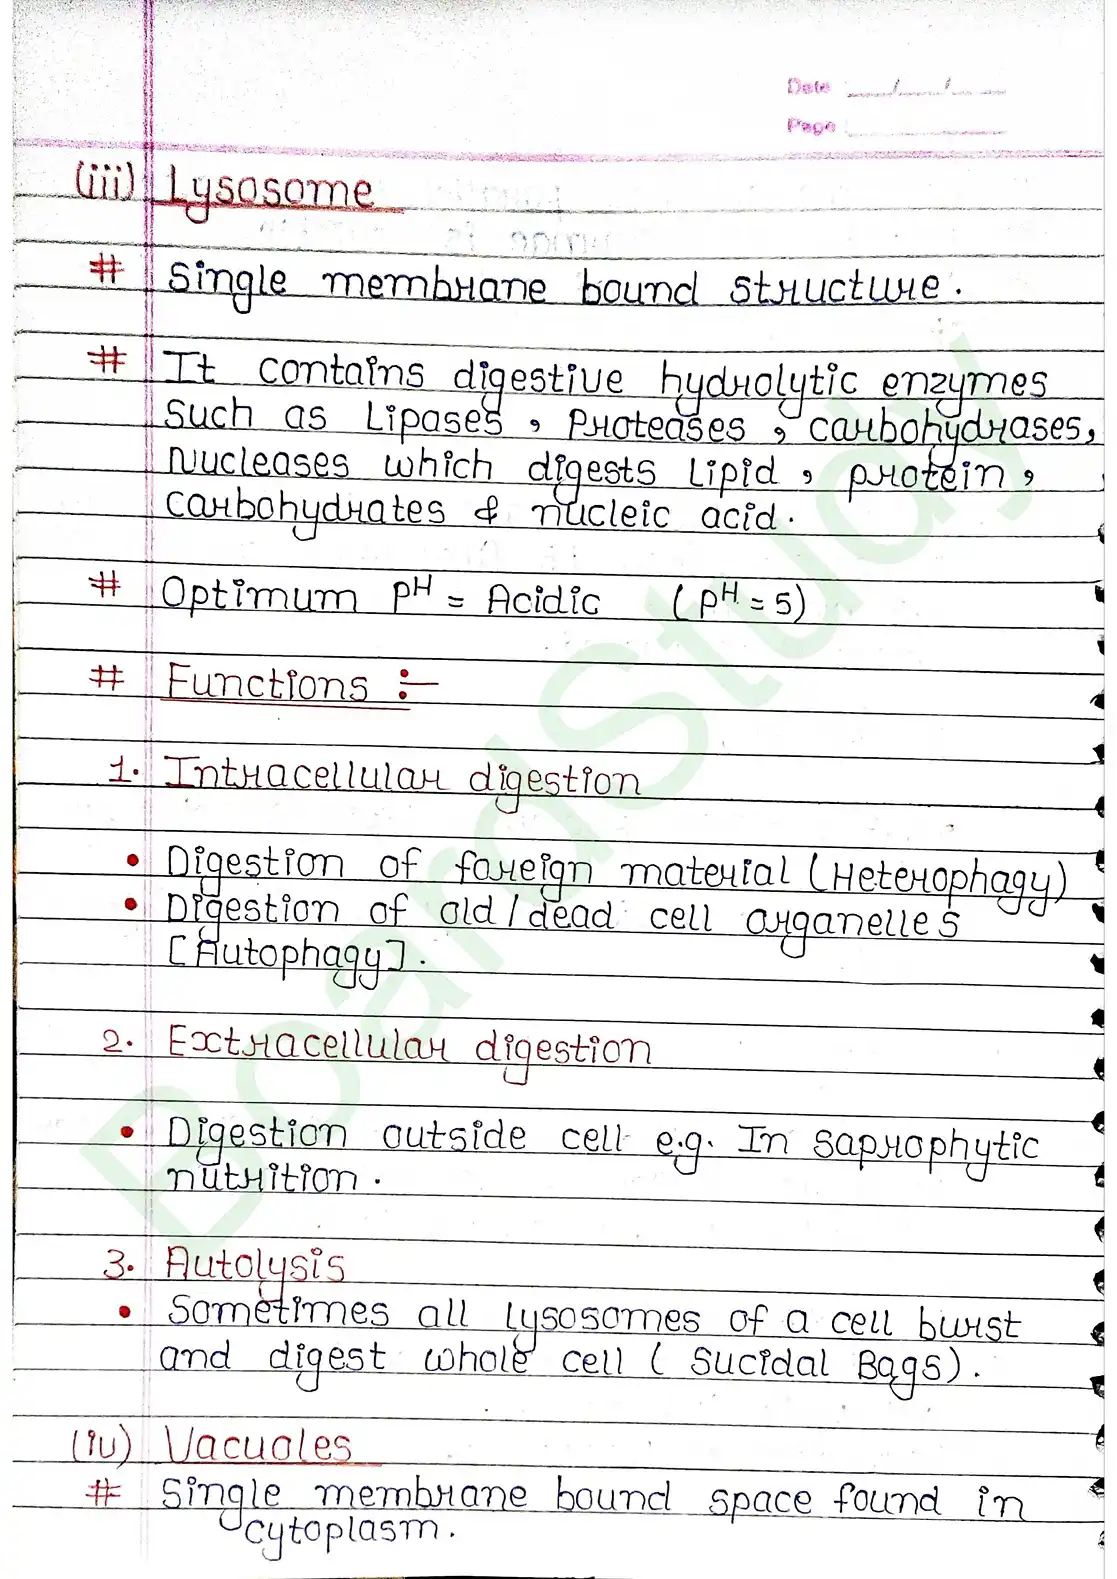 Date
Page
(iii) Lysosome
# Single membrane bound structure.
# It contains digestive hydrolytic enzymes
such as Lipases, Proteases, carbohydrases,
Nucleases which digests Lipid, protein,
carbohydrates & nucleic acid.
# Optimum pH = Acidic (pH = 5)
# Functions :-
1. Intracellular digestion
• Digestion of foreign material (Heterophagy)
• Digestion of old/dead cell organelles
[Autophagy].
2. Extracellular digestion
• Digestion outside cell e.g. In saprophytic
nutrition.
3. Autolysis
• Sometimes all lysosomes of a cell burst
and digest whole cell (Sucidal Bags).
(iv) Vacuoles
# Single membrane bound space found in
cytoplasm.
BoardStudy